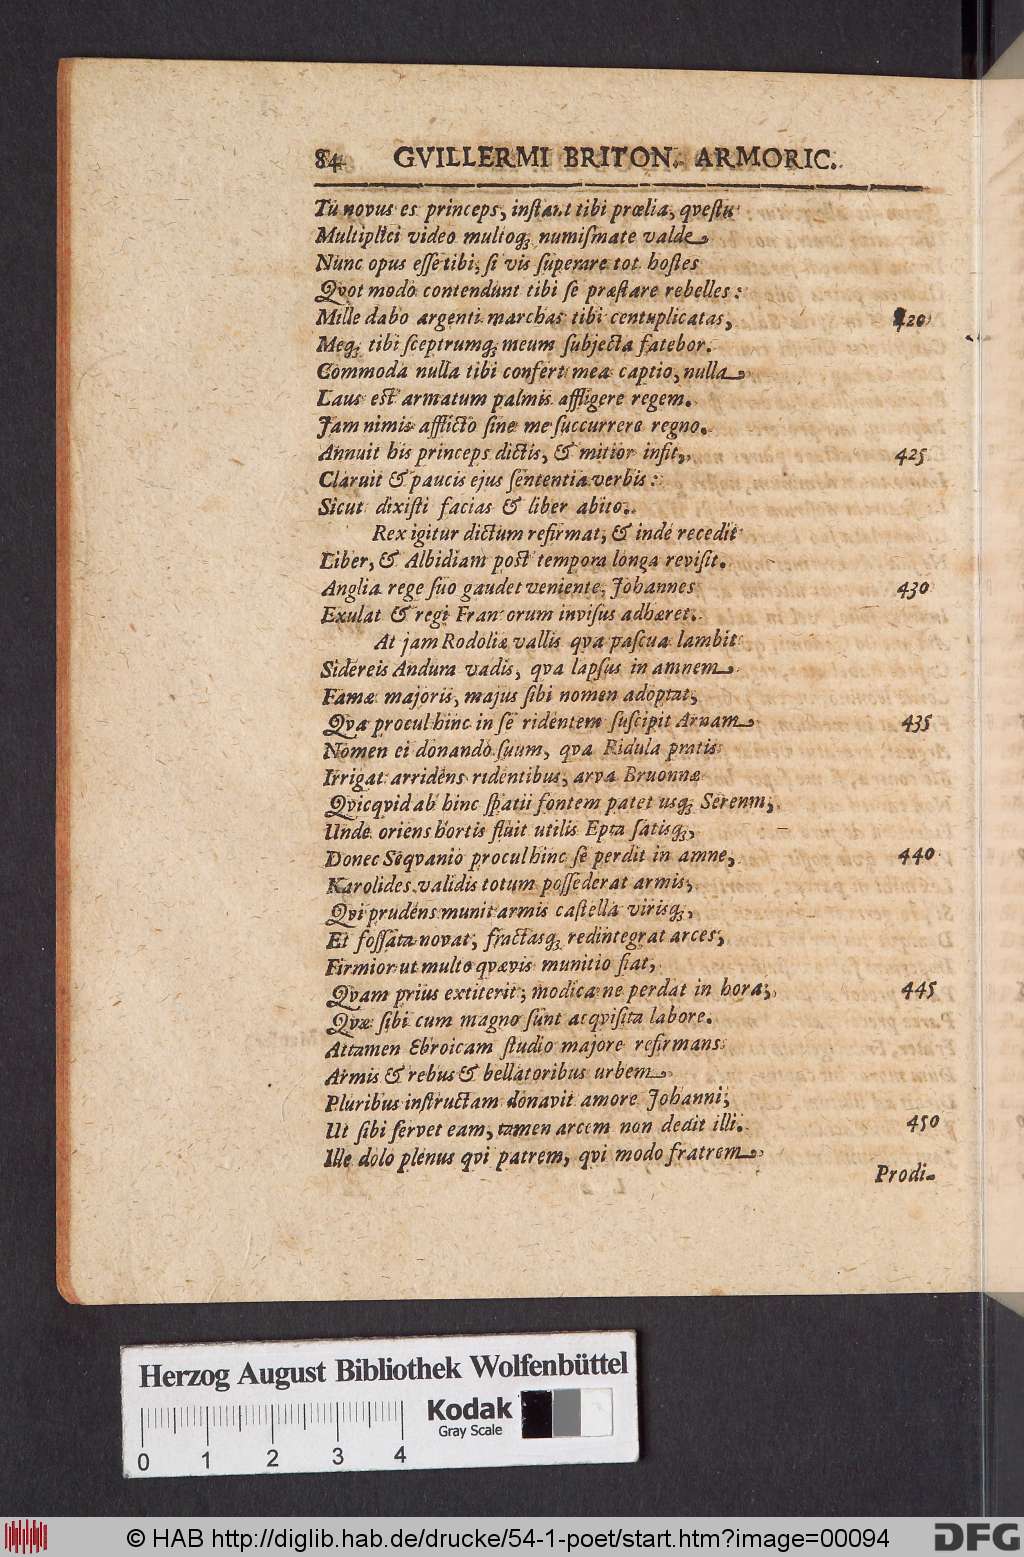 84 GVILLERMI BRITON. ARMORIC.
Tu novus es princeps, inſtant tibi prœlia, qveſtu
Multiplici video multoq; numiſmate valde
Nunc opus eſſe tibi, ſi vis ſuperare tot hoſtes
Qvot modo contendunt tibi ſe præſtare rebelles:
Mille dabo argenti marchas tibi centuplicatas, 420
Meq; tibi ſceptrumq; meum ſubjecta fatebor.
Commoda nulla tibi confert mea captio, nulla
Laus eſt armatum palmis affligere regem.
Jam nimis afflicto ſine me ſuccurrere regno.
Annuit his princeps dictis, & mitior inſit, 425
Claruit & paucis ejus ſententia verbis:
Sicut dixiſti facias & liber abito.
Rex igitur dictum refirmat, & inde recedit
Liber, & Albidiam poſt tempora longa reviſit.
Anglia rege ſuo gaudet veniente, Johannes 430
Exulat & regi Francorum inviſus adhæret.
At jam Rodoliæ vallis qva paſcua lambit
Sidereis Andura vadis, qva lapſus in amnem
Famæ majoris, majus ſibi nomen adoptat,
Qva procul hinc in ſe ridentem ſuſcipit Arvam 435
Nomen ei donando ſuum, qva Ridula pratis
Irrigat arridens ridentibus, arva Bruonnæ
Qvicqvid ab hinc ſpatii fontem patet usq; Serenm,
Unde oriens hortis fluit utilis Epta ſatisq;,
Donec Seqvanio procul hinc ſe perdit in amne, 440
Karolides validis totum poſſederat armis,
Qvi prudens munit armis caſtella virisq;,
Et foſſata novat, fractasq; redintegrat arces,
Firmior ut multo qvævis munitio fiat,
Qvam prius extiterit; modica ne perdat in hora, 445
Qvæ ſibi cum magno ſunt acqviſita labore.
Attamen Ebroicam ſtudio majore refirmans
Armis & rebus & bellatoribus urbem
Pluribus inſtructam donavit amore Johanni,
Ut ſibi ſervet eam, tamen arcem non dedit illi. 450
Ille dolo plenus qvi patrem, qvi modo fratrem
Prodi-
Herzog August Bibliothek Wolfenbüttel
Kodak
Gray Scale
0 1 2 3 4
© HAB http://diglib.hab.de/drucke/54-1-poet/start.htm?image=00094
DFG